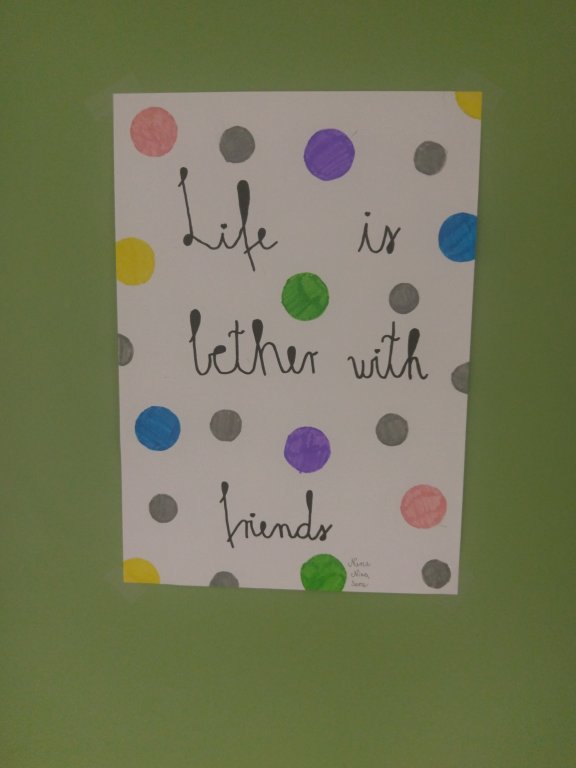 Life is
bether with
friends
Nina